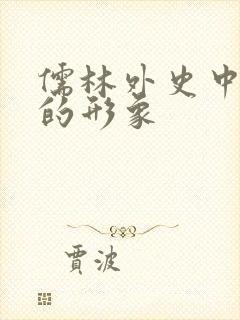 儒林外史中
的形象
賈波